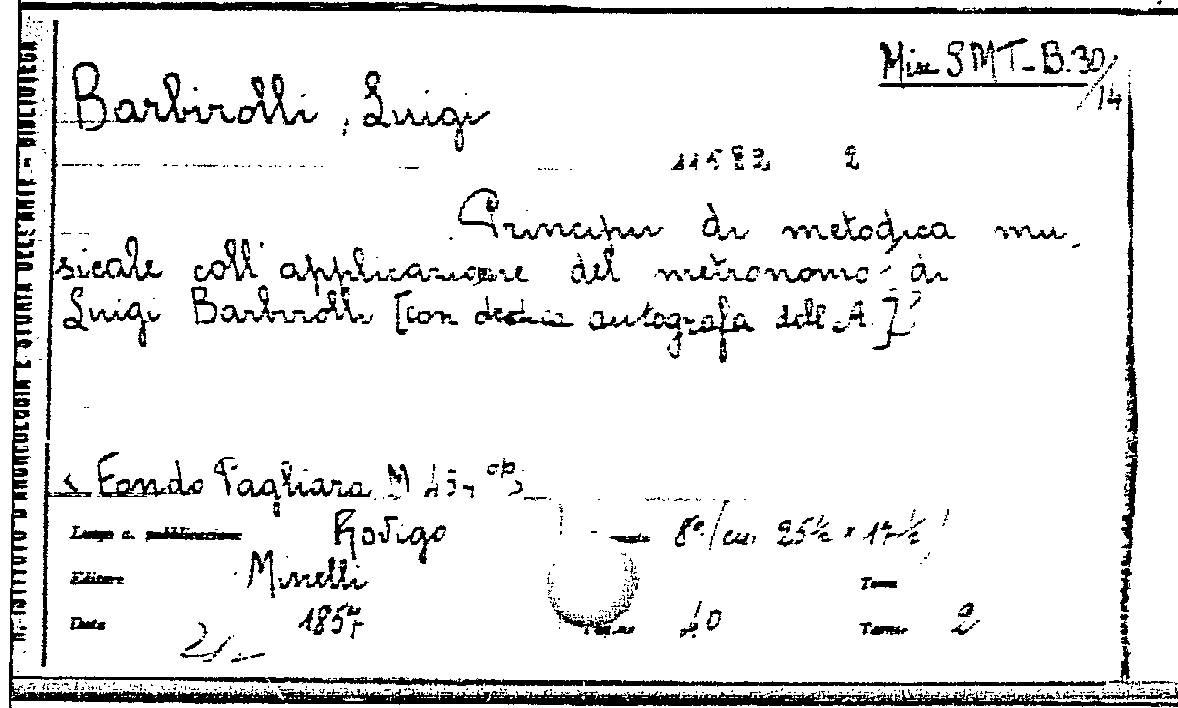 Misc SMT-B.30/14
Barbirolli, Luigi
11582 2
Principii di metodica mu-
sicale coll'applicazione del metronomo di
Luigi Barbirolli [con dedica autografa dell'A.]
Fondo Tagliara M
Luogo d. pubblicazione Rovigo 8° (cm. 25½ x 17½)
Editore Minelli Tomo
Data 1857 40 Tavole 2
R. ISTITUTO D'ARCHEOLOGIA E STORIA DELL'ARTE - BIBLIOTECA